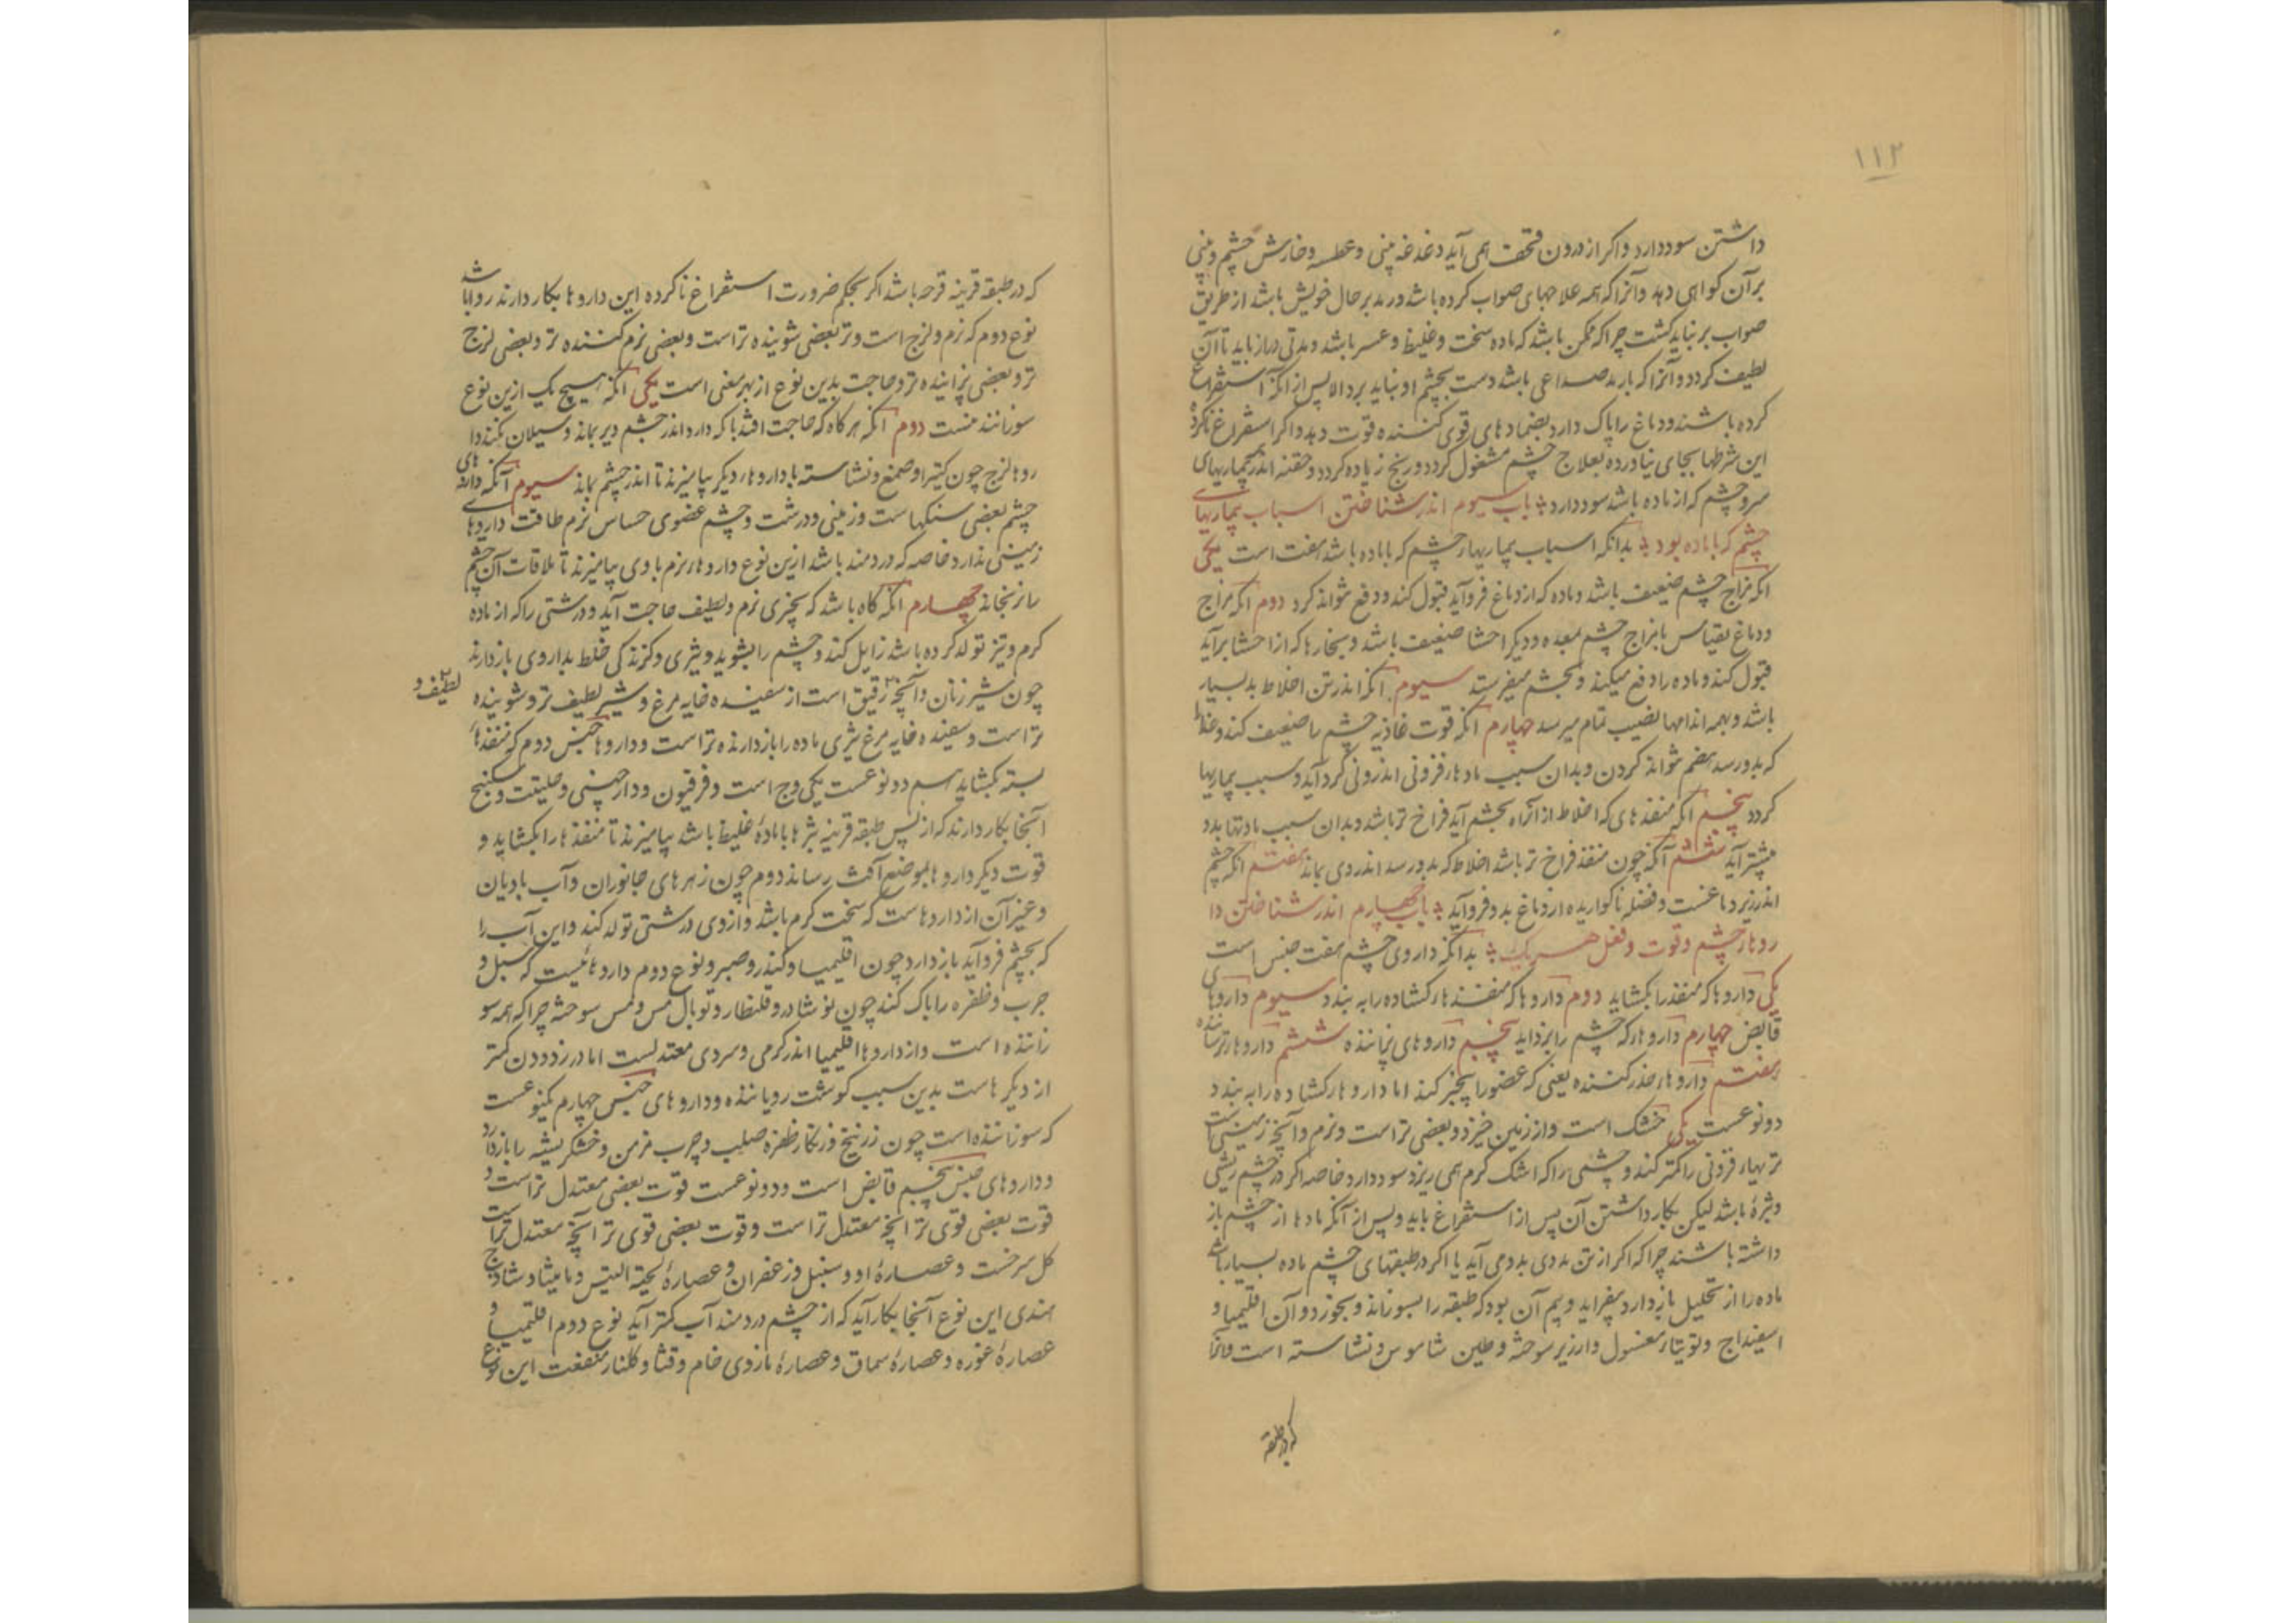 ۱۱۲
داشتن سود دارد و اکر از درون قحف همی آید دغدغه بینی و عطسه و خارش چشم و بینی
بر آن کواهی دهد و آنرا که همه علاجهای صواب کرده باشد و رمد بر حال خویش باشد از طریق
صواب بر نباید کشت چرا که ممکن باشد که ماده سخت و غلیظ و عسر باشد و مدتی دراز باید تا آن
لطیف کردد و آنرا که با رمد صداعی باشد دست بچشم او نباید برد الا پس از انکه استفراغ
کرده باشند و دماغ را پاک دارد بضمادهای قوی کننده قوت دهد و اکر استفراغ ناکرده
این شرطها بجای نیاورده بعلاج چشم مشغول کردد و رنج زیاده کردد و حقنه اندر بیماریهای
سر و چشم که از ماده باشد سود دارد باب سیوم اندر شناختن اسباب بیماریهای
چشم که با ماده بود بدانکه اسباب بیماریهای چشم که با ماده باشد هفت است یکی
انکه مزاج چشم ضعیف باشد و ماده که از دماغ فرو آید قبول کند و دفع نتواند کرد دوم انکه مزاج
و دماغ بقیاس با مزاج چشم معده و دیکر احشا ضعیف باشد و بخارها که از احشا برآید
قبول کند و ماده را دفع میکند و بچشم میفرستد سیوم انکه اندر تن اخلاط بد بسیار
باشد و بهمه اندامها نصیب تمام میرسد چهارم انکه قوت غاذیه چشم را ضعیف کند و غذا
که بدو رسد هضم نتواند کردن و بدان سبب مادهاء فزونی اندرونی کرد آید و سبب بیماریها
کردد پنجم انکه منفذهای که اخلاط از آنراه بچشم آید فراخ تر باشد و بدان سبب مادتها بدو
بیشتر آید ششم آنکه چون منفذ فراخ تر باشد اخلاط که بدو رسد اندر وی بماند هفتم انکه چشم
اندر زیر دماغست و فضله ناکواریده از دماغ بدو فرو آید باب چهارم اندر شناختن دا
روهاء چشم و قوت و فعل هر یک بدانکه داروی چشم هفت جنس است
یکی داروها که منفذ را بکشاید دوم داروها که منفذهاء کشاده را به بندد سیوم داروهای
قابض چهارم داروهاء که چشم را بزداید پنجم داروهای پزاننده ششم داروهاء
هفتم داروهاء خدر کننده یعنی که عضو را بیخبر کند اما داروهاء کشاده را به بندد
دو نوعست یکی خشک است و از زمین خیزد و بعضی تر است و نرم و آنچه زمینی است
تریهاء فزونی را کمتر کند و چشمی را که اشک کرم همی ریزد سود دارد خاصه اکر در چشم ریشی
و بثرهٔ باشد لیکن بکار داشتن آن پس از استفراغ باید و پس از آنکه مادها از چشم باز
داشته باشند چرا که اکر از تن مددی بدو می آید یا اکر در طبقهای چشم ماده بسیار باشد
ماده را از تحلیل باز دارد بیفزاید و بیم آن بود که طبقه را بسوزاند و بخورد و آن اقلیمیا و
اسفیداج و توتیاء مغسول و ارزیز سوخته و طین شاموس و نشاسته است
که در طبقه
که در طبقه قرنیه قرحه باشد اکر بحکم ضرورت استفراغ ناکرده این داروها بکار دارند روا باشد
نوع دوم که نرم و لزج است و تر بعضی شوینده تر است و بعضی نرم کننده تر و بعضی لزج
تر و بعضی پزاینده تر و حاجت بدین نوع از بهر معنی است یکی انکه هیچ یک ازین نوع
سوزانند نیست دوم انکه هر کاه که حاجت افتد تا که دارو اندر چشم دیر بماند و سیلان نکند دا
روهاء لزج چون کتیرا و صمغ و نشاسته با داروهاء دیکر بیامیزند تا اندر چشم بماند سیوم آنکه داروهای
چشم بعضی سنکهاست و زمینی و درشت و چشم عضوی حساس نرم طاقت داروهاے
زمینی ندارد خاصه که دردمند باشد ازین نوع داروهاء نرم با وی بیامیزند تا ملاقات آن چشم
را نرنجاند چهارم انکه کاه باشد که بچیزی نرم و لطیف حاجت آید و درشتی را که از ماده
کرم و تیز تولد کرده باشد زایل کند و چشم را بشوید و تیزی و کزندکی خلط بد از وی باز دارند
چون شیر زنان و آنچه رقیق است از سفیده خایه مرغ و شیر لطیف تر و شوینده
لطیف و
تر است و سفیده خایه مرغ تیزی ماده را باز دارنده تر است و داروها جنس دوم که منفذهاء
بسته بکشاید هم دو نوعست یکی وج است و فرفیون و دارچینی و حلتیت و سکبینج
آنجا بکار دارند که از پس طبقه قرنیه بثرها با مادهٔ غلیظ باشد بیامیزند تا منفذها را بکشاید و
قوت دیکر داروها بموضع آفت رساند دوم چون زهرهای جانوران و آب بادیان
و غیر آن از داروهاست که سخت کرم باشد و از وی درشتی تولد کند و این آب را
که بچشم فرو آید باز دارد چون اقلیمیا و کندر و صبر و نوع دوم داروهائیست که سبل و
جرب و ظفره را پاک کند چون نوشادر و قلقطار و توبال مس و مس سوخته چرا که همه سو
زاننده است و از داروها اقلیمیا اندر کرمی و سردی معتدلست اما در زدودن کمتر
از دیکرهاست بدین سبب کوشت رویاننده و داروهای جنس چهارم یکنوعست
که سوزاننده است چون زرنیخ و زنکار ظفره صلب و جرب مزمن و خشکریشه را باز دارد
و داروهای جنس پنجم قابض است و دو نوعست قوت بعضی معتدل تر است و
قوت بعضی قوی تر انچه معتدل تر است و قوت بعضی قوی تر آنچه معتدل تر است
کل سرخست و عصارهٔ او و سنبل و زعفران و عصارهٔ لحیة التیس و مامیثا و شادنج
هندی این نوع آنجا بکار آید که از چشم دردمند آب کمتر آید نوع دوم اقلیمیا و
عصارهٔ غوره و عصارهٔ سماق و عصارهٔ مازوی خام و قثا و کلنار منفعت این نوع